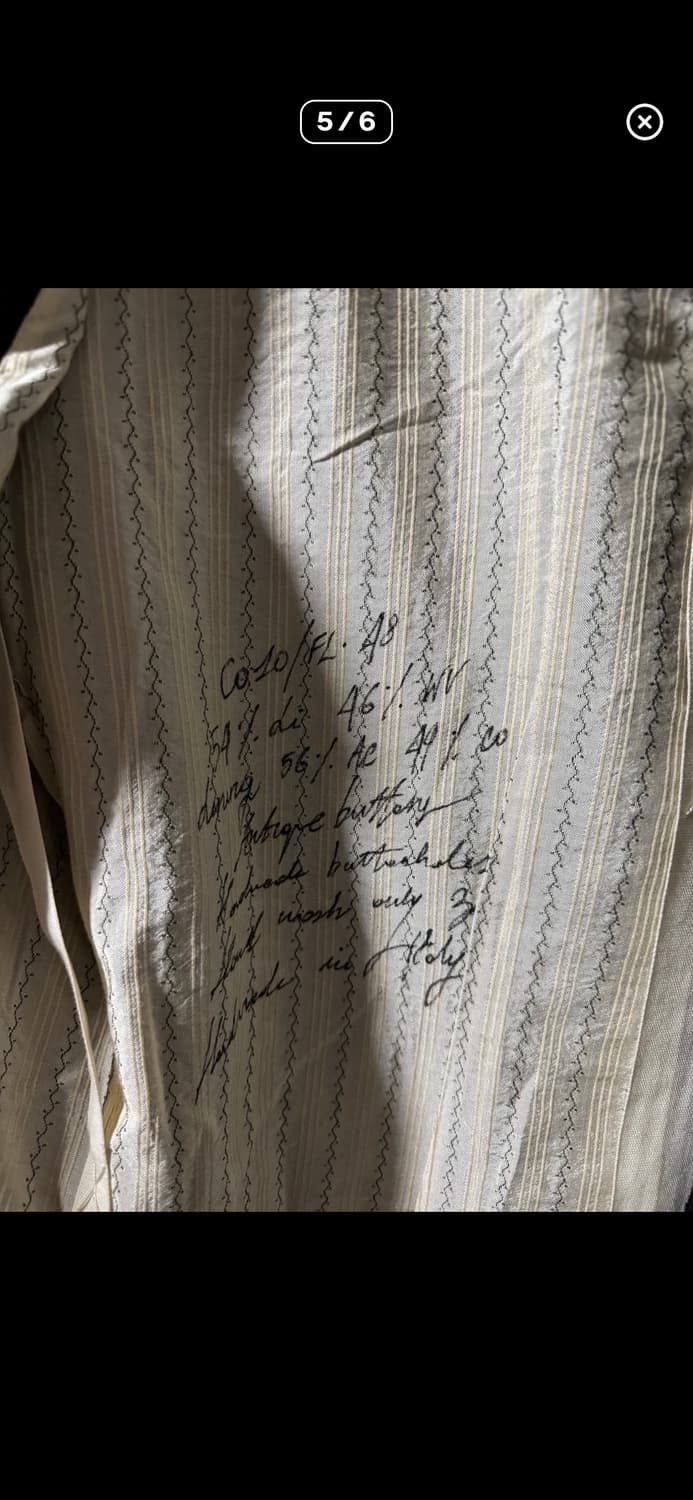 5/6
CO10/FL. 48
54% Li 46% WV
lining 56% AC 44% CO
Antique buttons
Handmade buttonholes
Hand wash only 3
Handmade in Italy